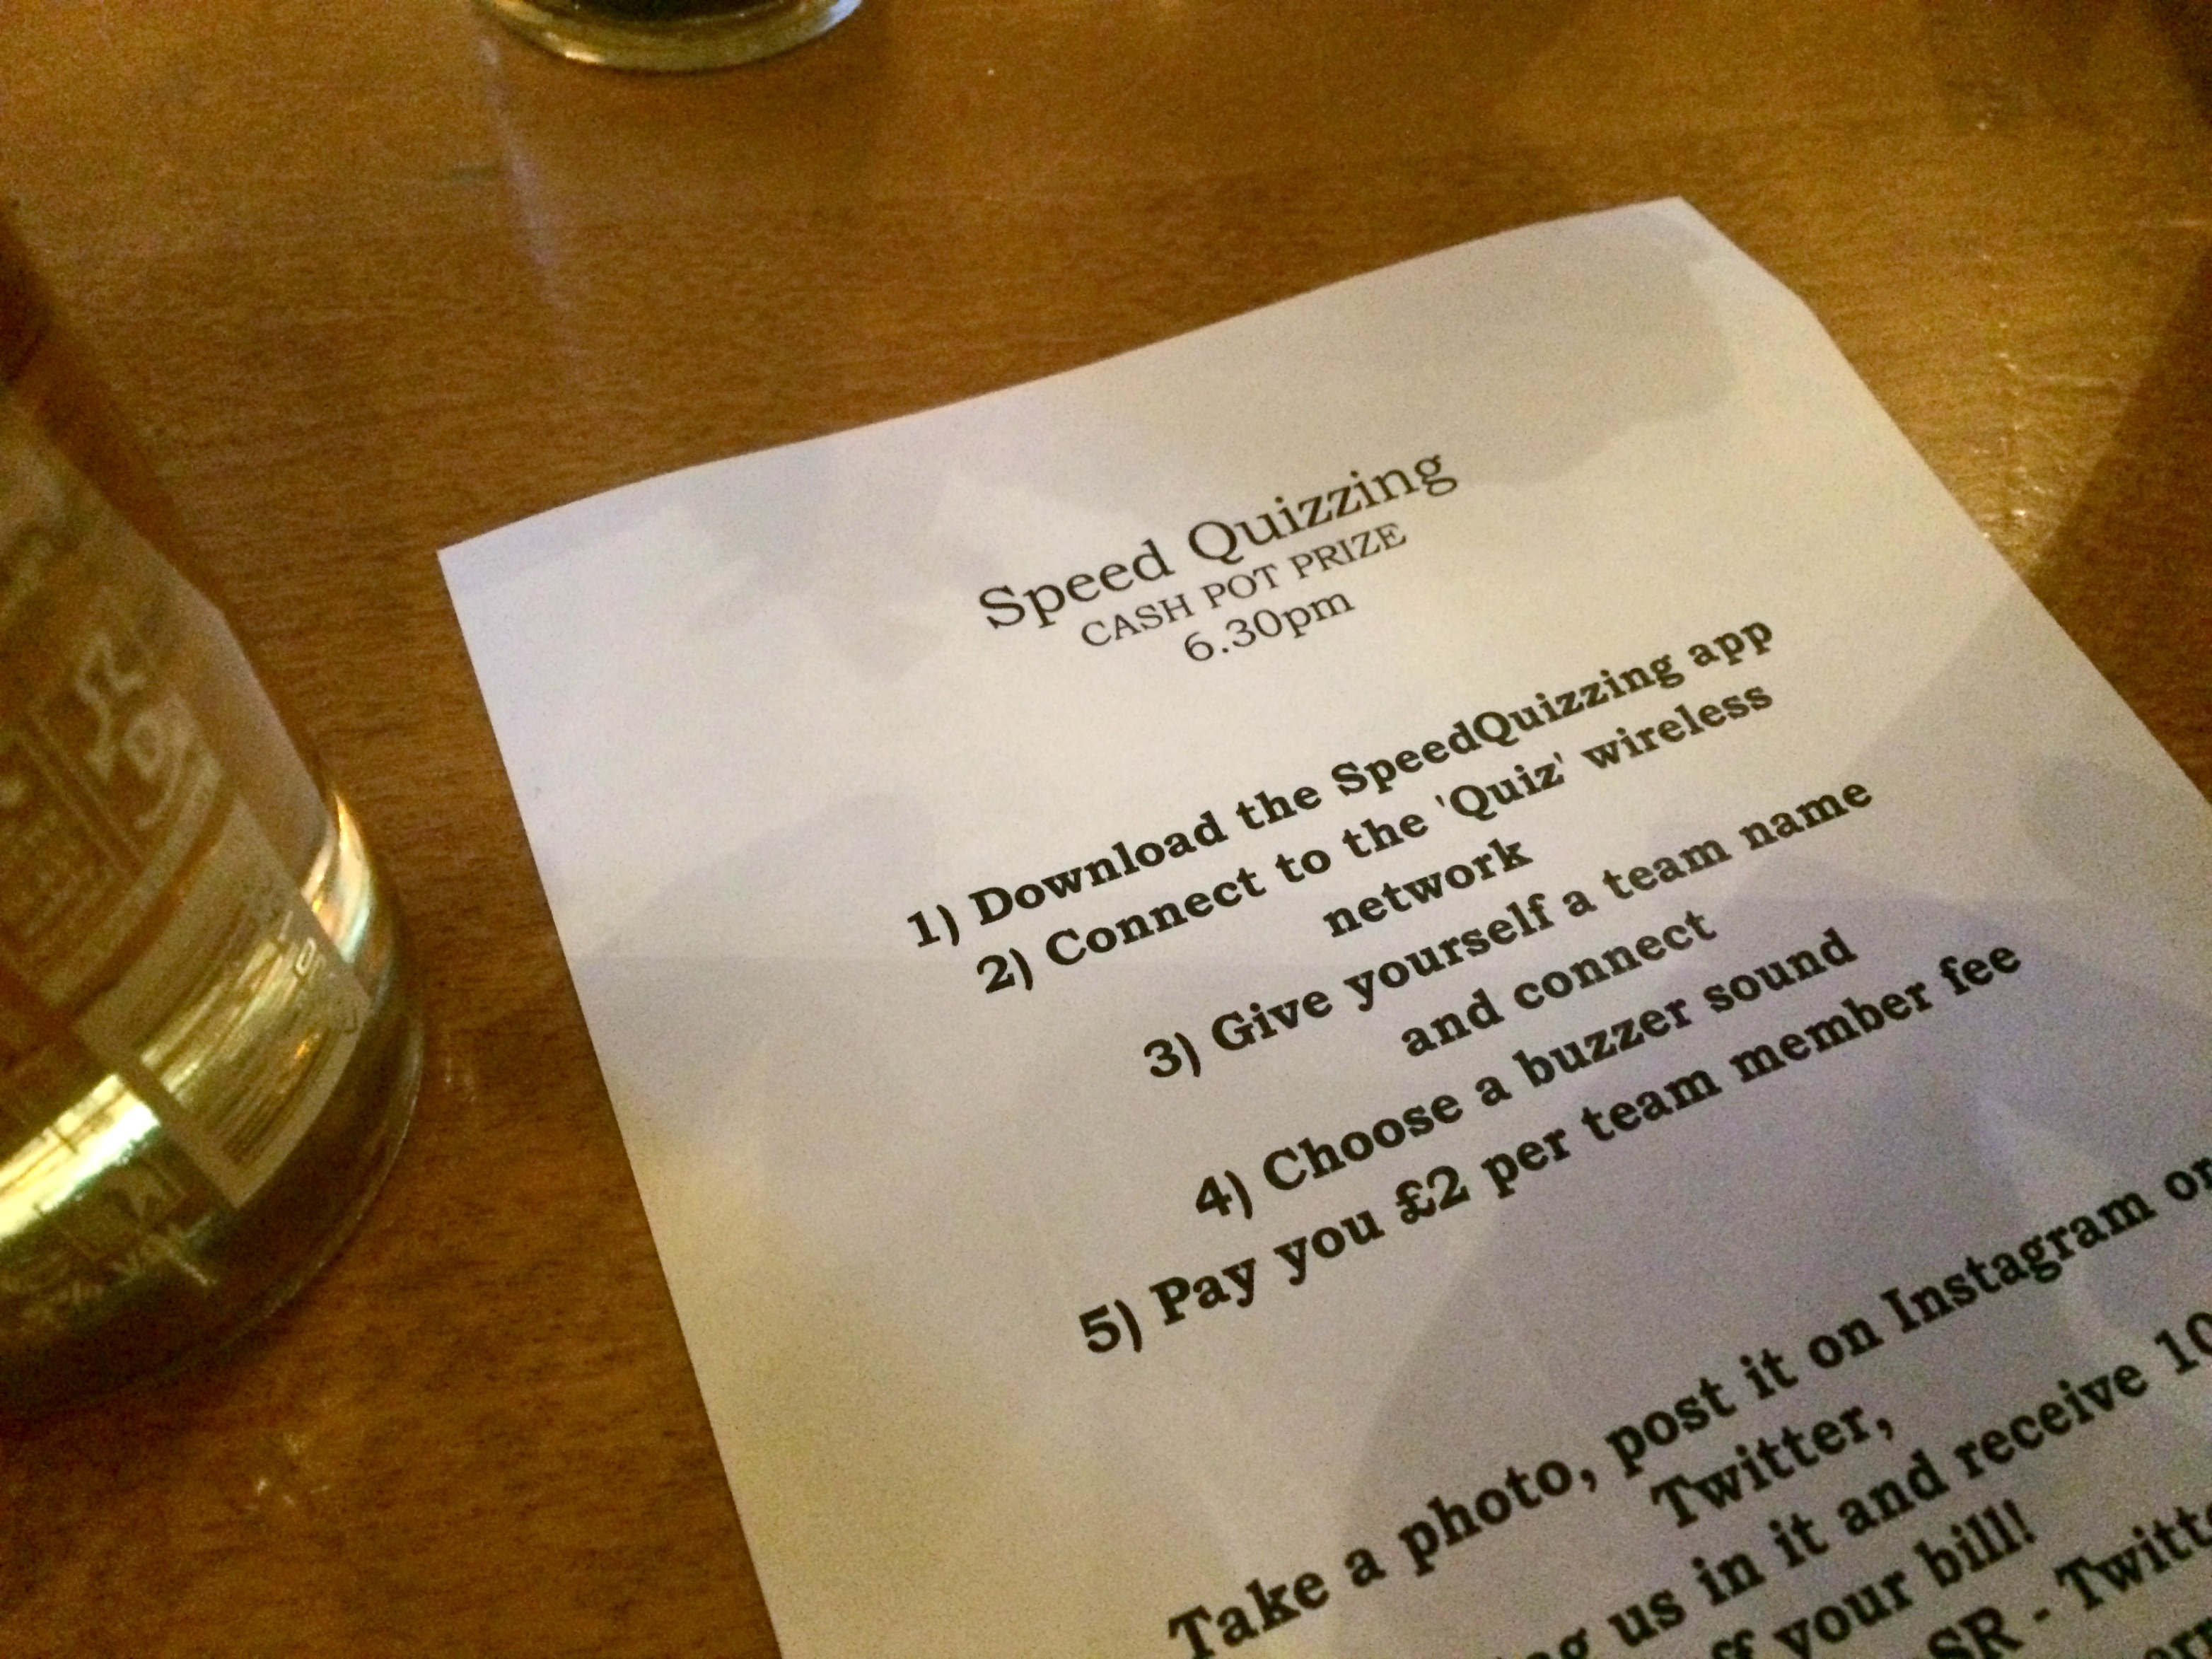 Speed Quizzing
CASH POT PRIZE
6.30pm
1) Download the SpeedQuizzing app
2) Connect to the 'Quiz' wireless
network
3) Give yourself a team name
and connect
4) Choose a buzzer sound
5) Pay you £2 per team member fee
Take a photo, post it on Instagram or
Twitter,
us in it and receive
your bill!
-